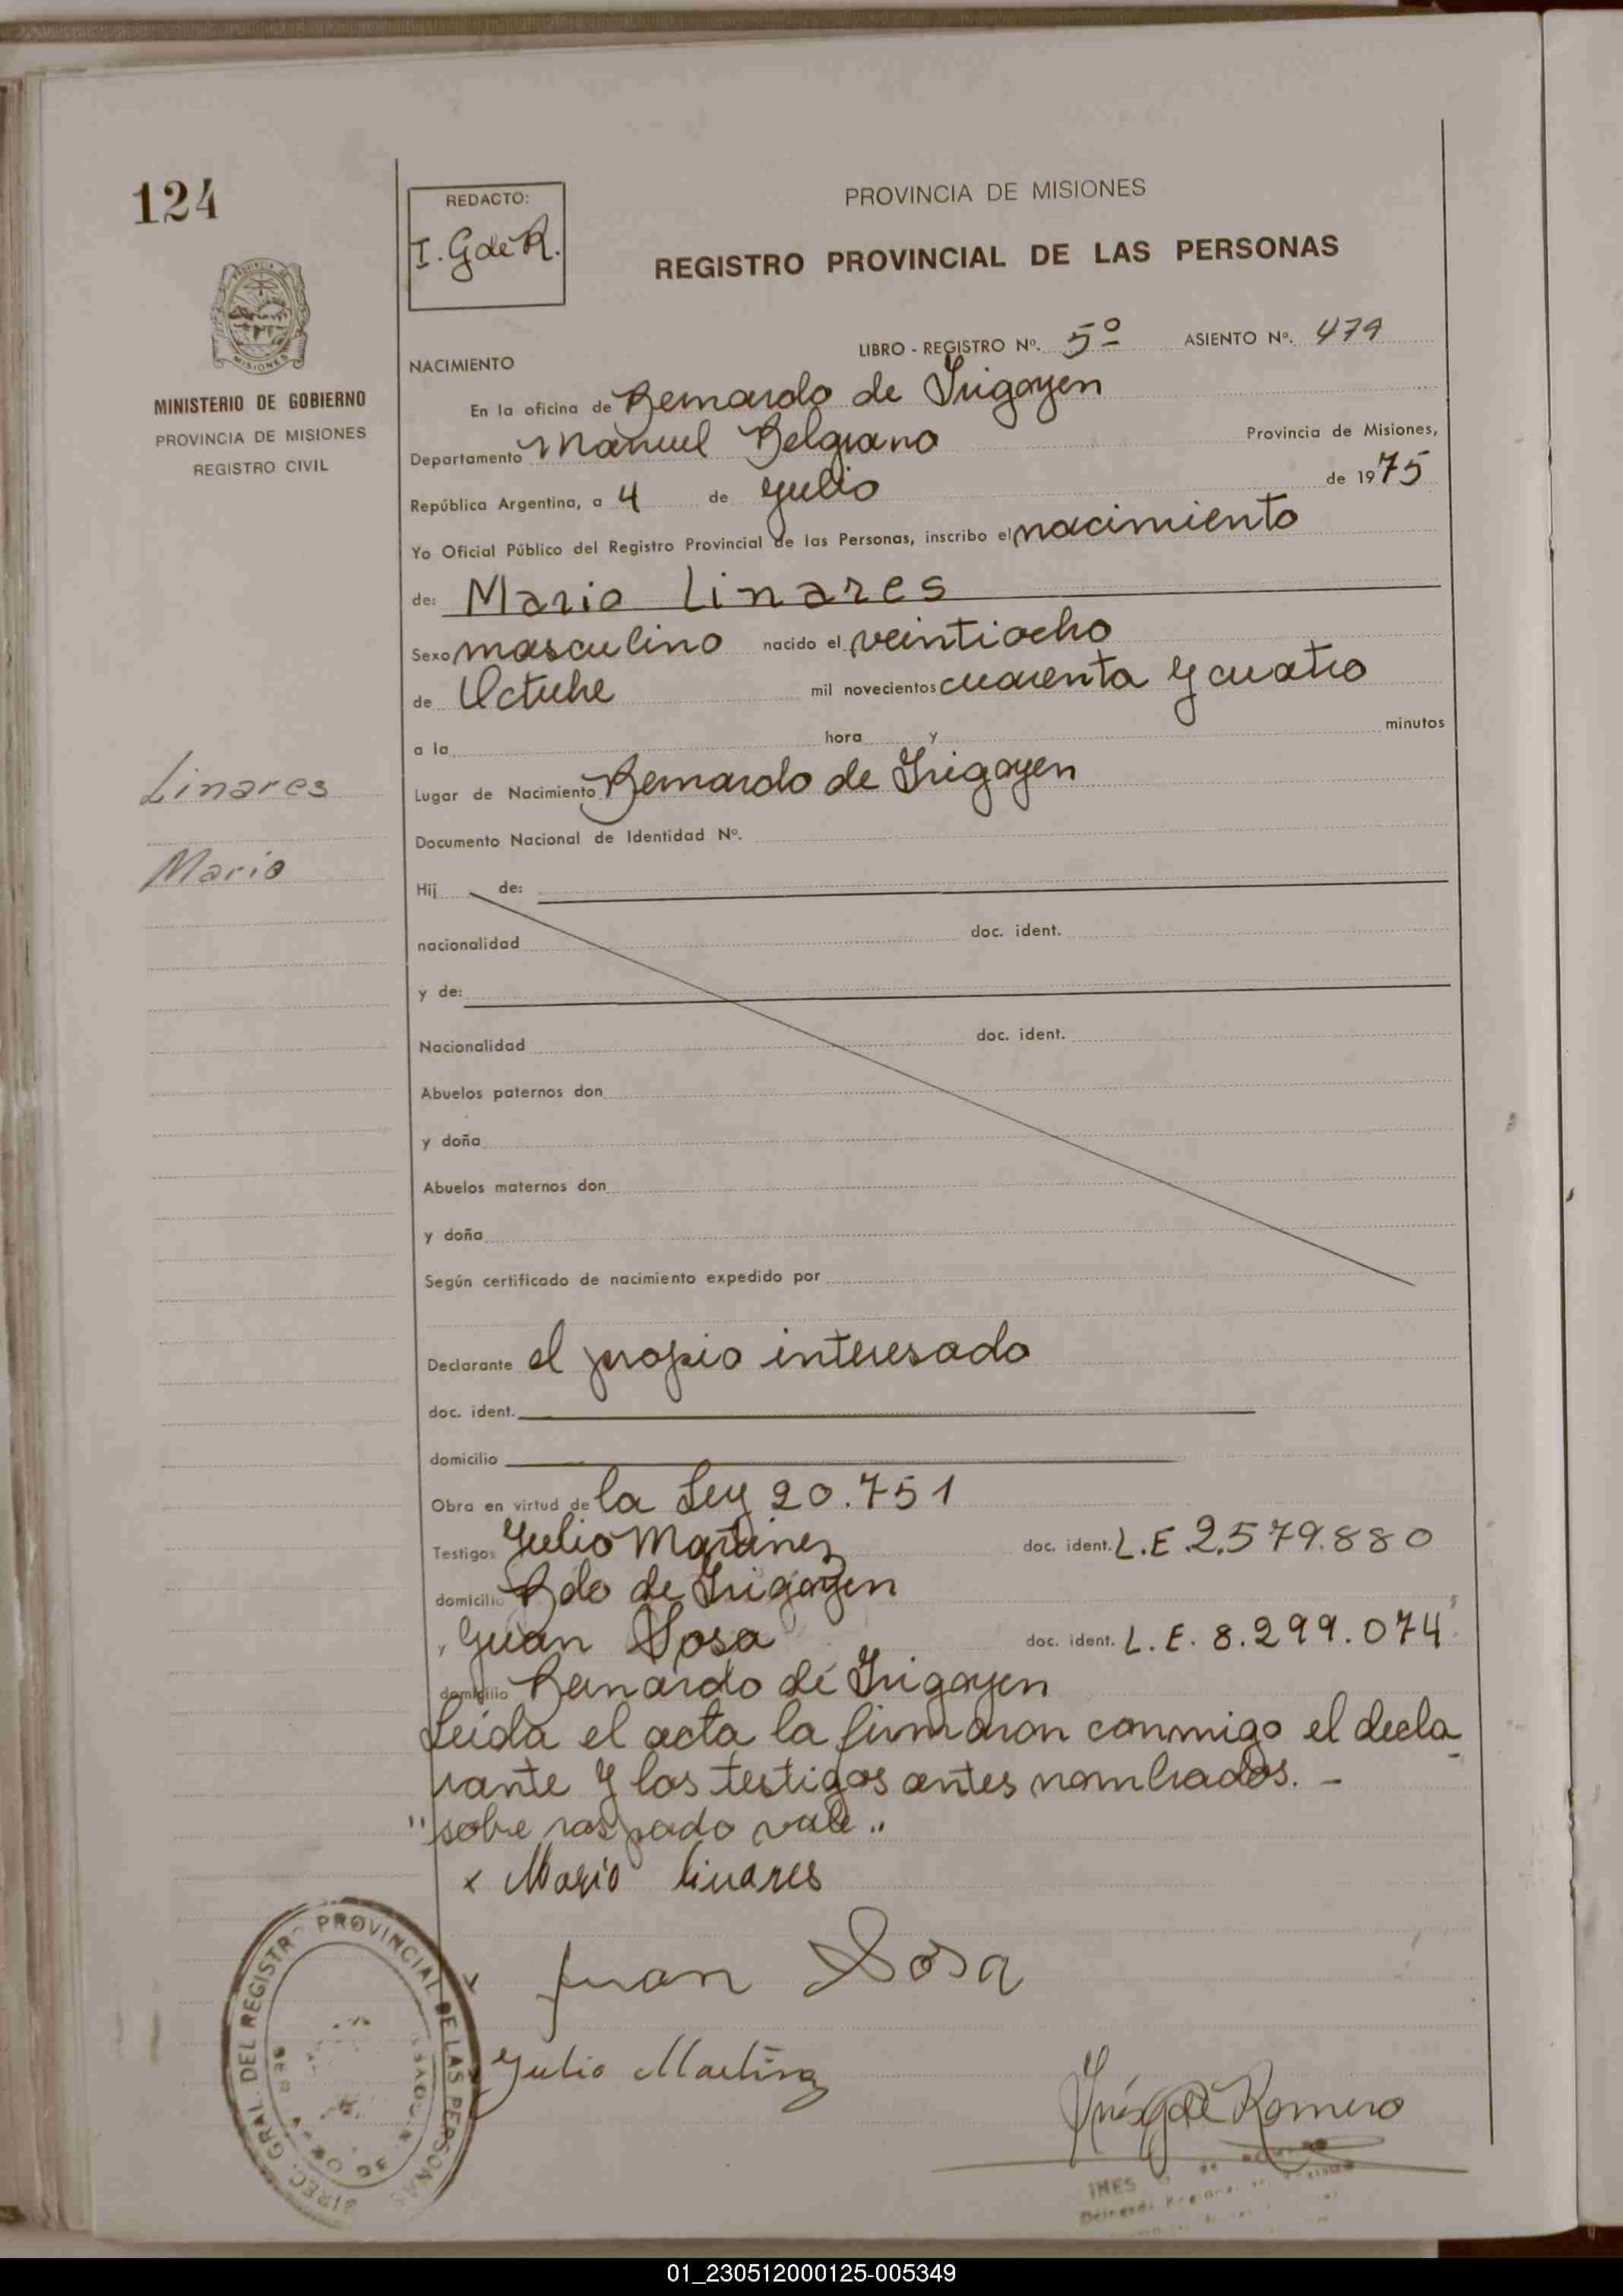 124
REDACTO:
I. G de R.
PROVINCIA DE MISIONES
REGISTRO PROVINCIAL DE LAS PERSONAS
MISIONES
MINISTERIO DE GOBIERNO
PROVINCIA DE MISIONES
REGISTRO CIVIL
LIBRO - REGISTRO Nº. 5º ASIENTO Nº. 479
NACIMIENTO
En la oficina de Bernardo de Irigoyen
Departamento Manuel Belgrano Provincia de Misiones,
República Argentina, a 4 de Julio de 1975
Yo Oficial Público del Registro Provincial de las Personas, inscribo el nacimiento
de: Mario Linares
Sexo masculino nacido el veintiocho
de Octubre mil novecientos cuarenta y cuatro
a la hora y minutos
Linares
Mario
Lugar de Nacimiento Bernardo de Irigoyen
Documento Nacional de Identidad Nº.
Hij de:
nacionalidad doc. ident.
y de:
Nacionalidad doc. ident.
Abuelos paternos don
y doña
Abuelos maternos don
y doña
Según certificado de nacimiento expedido por
Declarante el propio interesado
doc. ident.
domicilio
Obra en virtud de la Ley 20.751
Testigos Julio Martinez doc. ident. L.E. 2.579.880
domicilio Bdo de Irigoyen
y Juan Sosa doc. ident. L.E. 8.299.074
domicilio Bernardo de Irigoyen
Leida el acta la firmaron conmigo el decla
rante y los testigos antes nombrados. -
"sobre raspado vale"
x Mario Linares
x Juan Sosa
Julio Martinez
Inés G de Romero
INES
DIREC. GRAL. DEL REGISTRO PROVINCIAL DE LAS PERSONAS
01_230512000125-005349